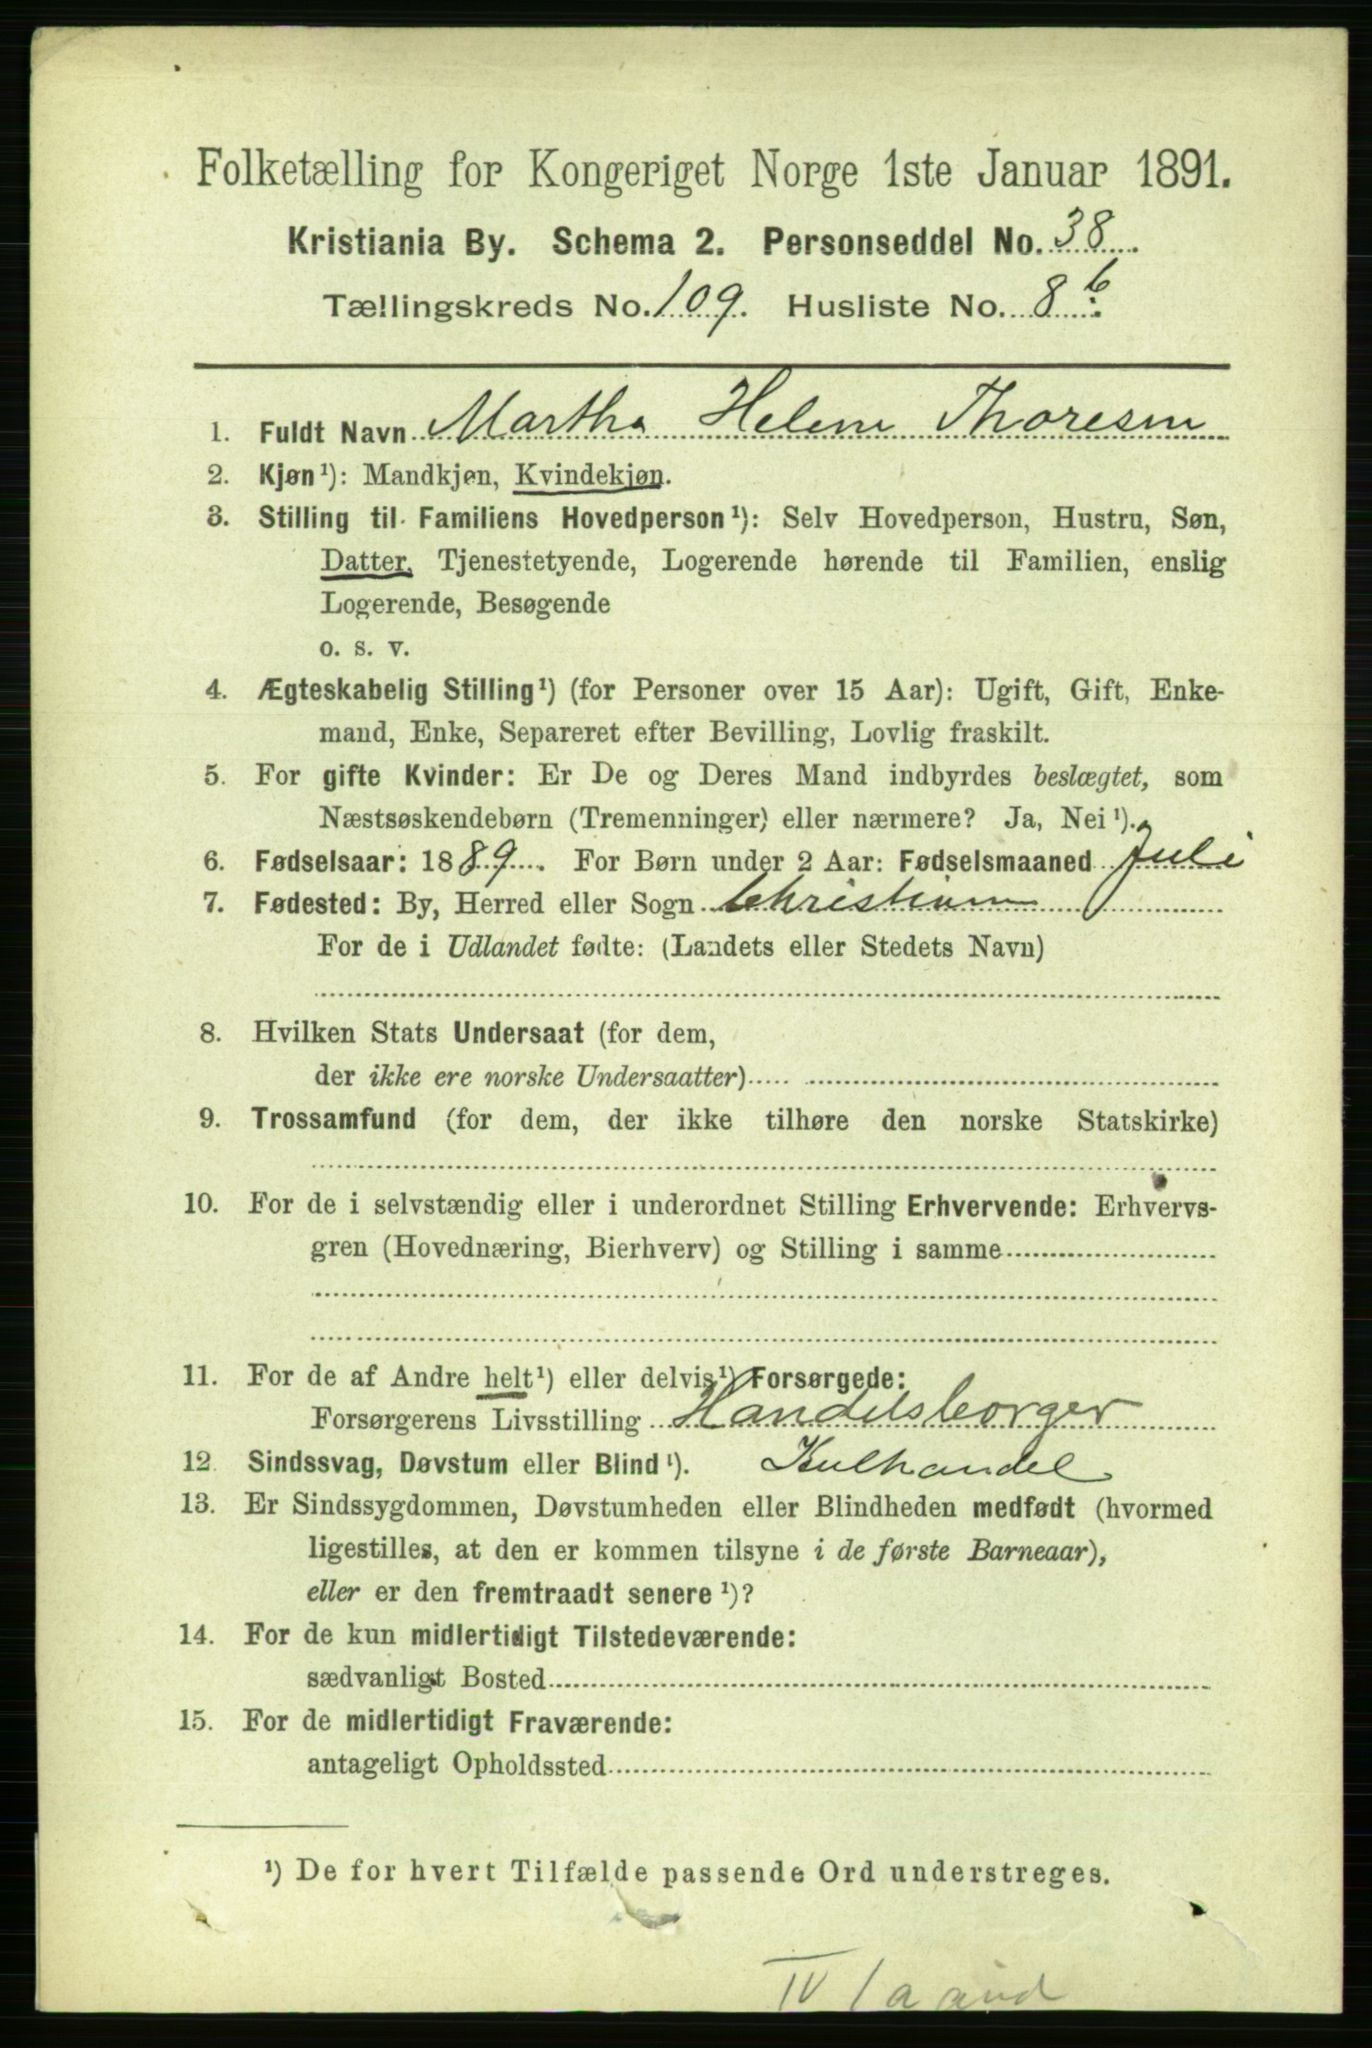 Folketælling for Kongeriget Norge 1ste Januar 1891.
Kristiania By. Schema 2. Personseddel No. 38
Tællingskreds No. 109. Husliste No. 8 b.
1. Fuldt Navn Martha Helene Thoresen
2. Kjøn¹): Mandkjøn, Kvindekjøn.
3. Stilling til Familiens Hovedperson¹): Selv Hovedperson, Hustru, Søn,
Datter, Tjenestetyende, Logerende hørende til Familien, enslig
Logerende, Besøgende
o. s. v.
4. Ægteskabelig Stilling¹) (for Personer over 15 Aar): Ugift, Gift, Enke-
mand, Enke, Separeret efter Bevilling, Lovlig fraskilt.
5. For gifte Kvinder: Er De og Deres Mand indbyrdes beslægtet, som
Næstsøskendebørn (Tremenninger) eller nærmere? Ja, Nei¹).
6. Fødselsaar: 1889. For Børn under 2 Aar: Fødselsmaaned Juli
7. Fødested: By, Herred eller Sogn Christiania
For de i Udlandet fødte: (Landets eller Stedets Navn)
8. Hvilken Stats Undersaat (for dem,
der ikke ere norske Undersaatter)
9. Trossamfund (for dem, der ikke tilhøre den norske Statskirke)
10. For de i selvstændig eller i underordnet Stilling Erhvervende: Erhvervs-
gren (Hovednæring, Bierhverv) og Stilling i samme
11. For de af Andre helt¹) eller delvis¹) Forsørgede:
Forsørgerens Livsstilling Handelsborger
12 Sindssvag, Døvstum eller Blind¹). Kulhandel
13. Er Sindssygdommen, Døvstumheden eller Blindheden medfødt (hvormed
ligestilles, at den er kommen tilsyne i de første Barneaar),
eller er den fremtraadt senere¹)?
14. For de kun midlertidigt Tilstedeværende:
sædvanligt Bosted
15. For de midlertidigt Fraværende:
antageligt Opholdssted
¹) De for hvert Tilfælde passende Ord understreges.
IV 1a